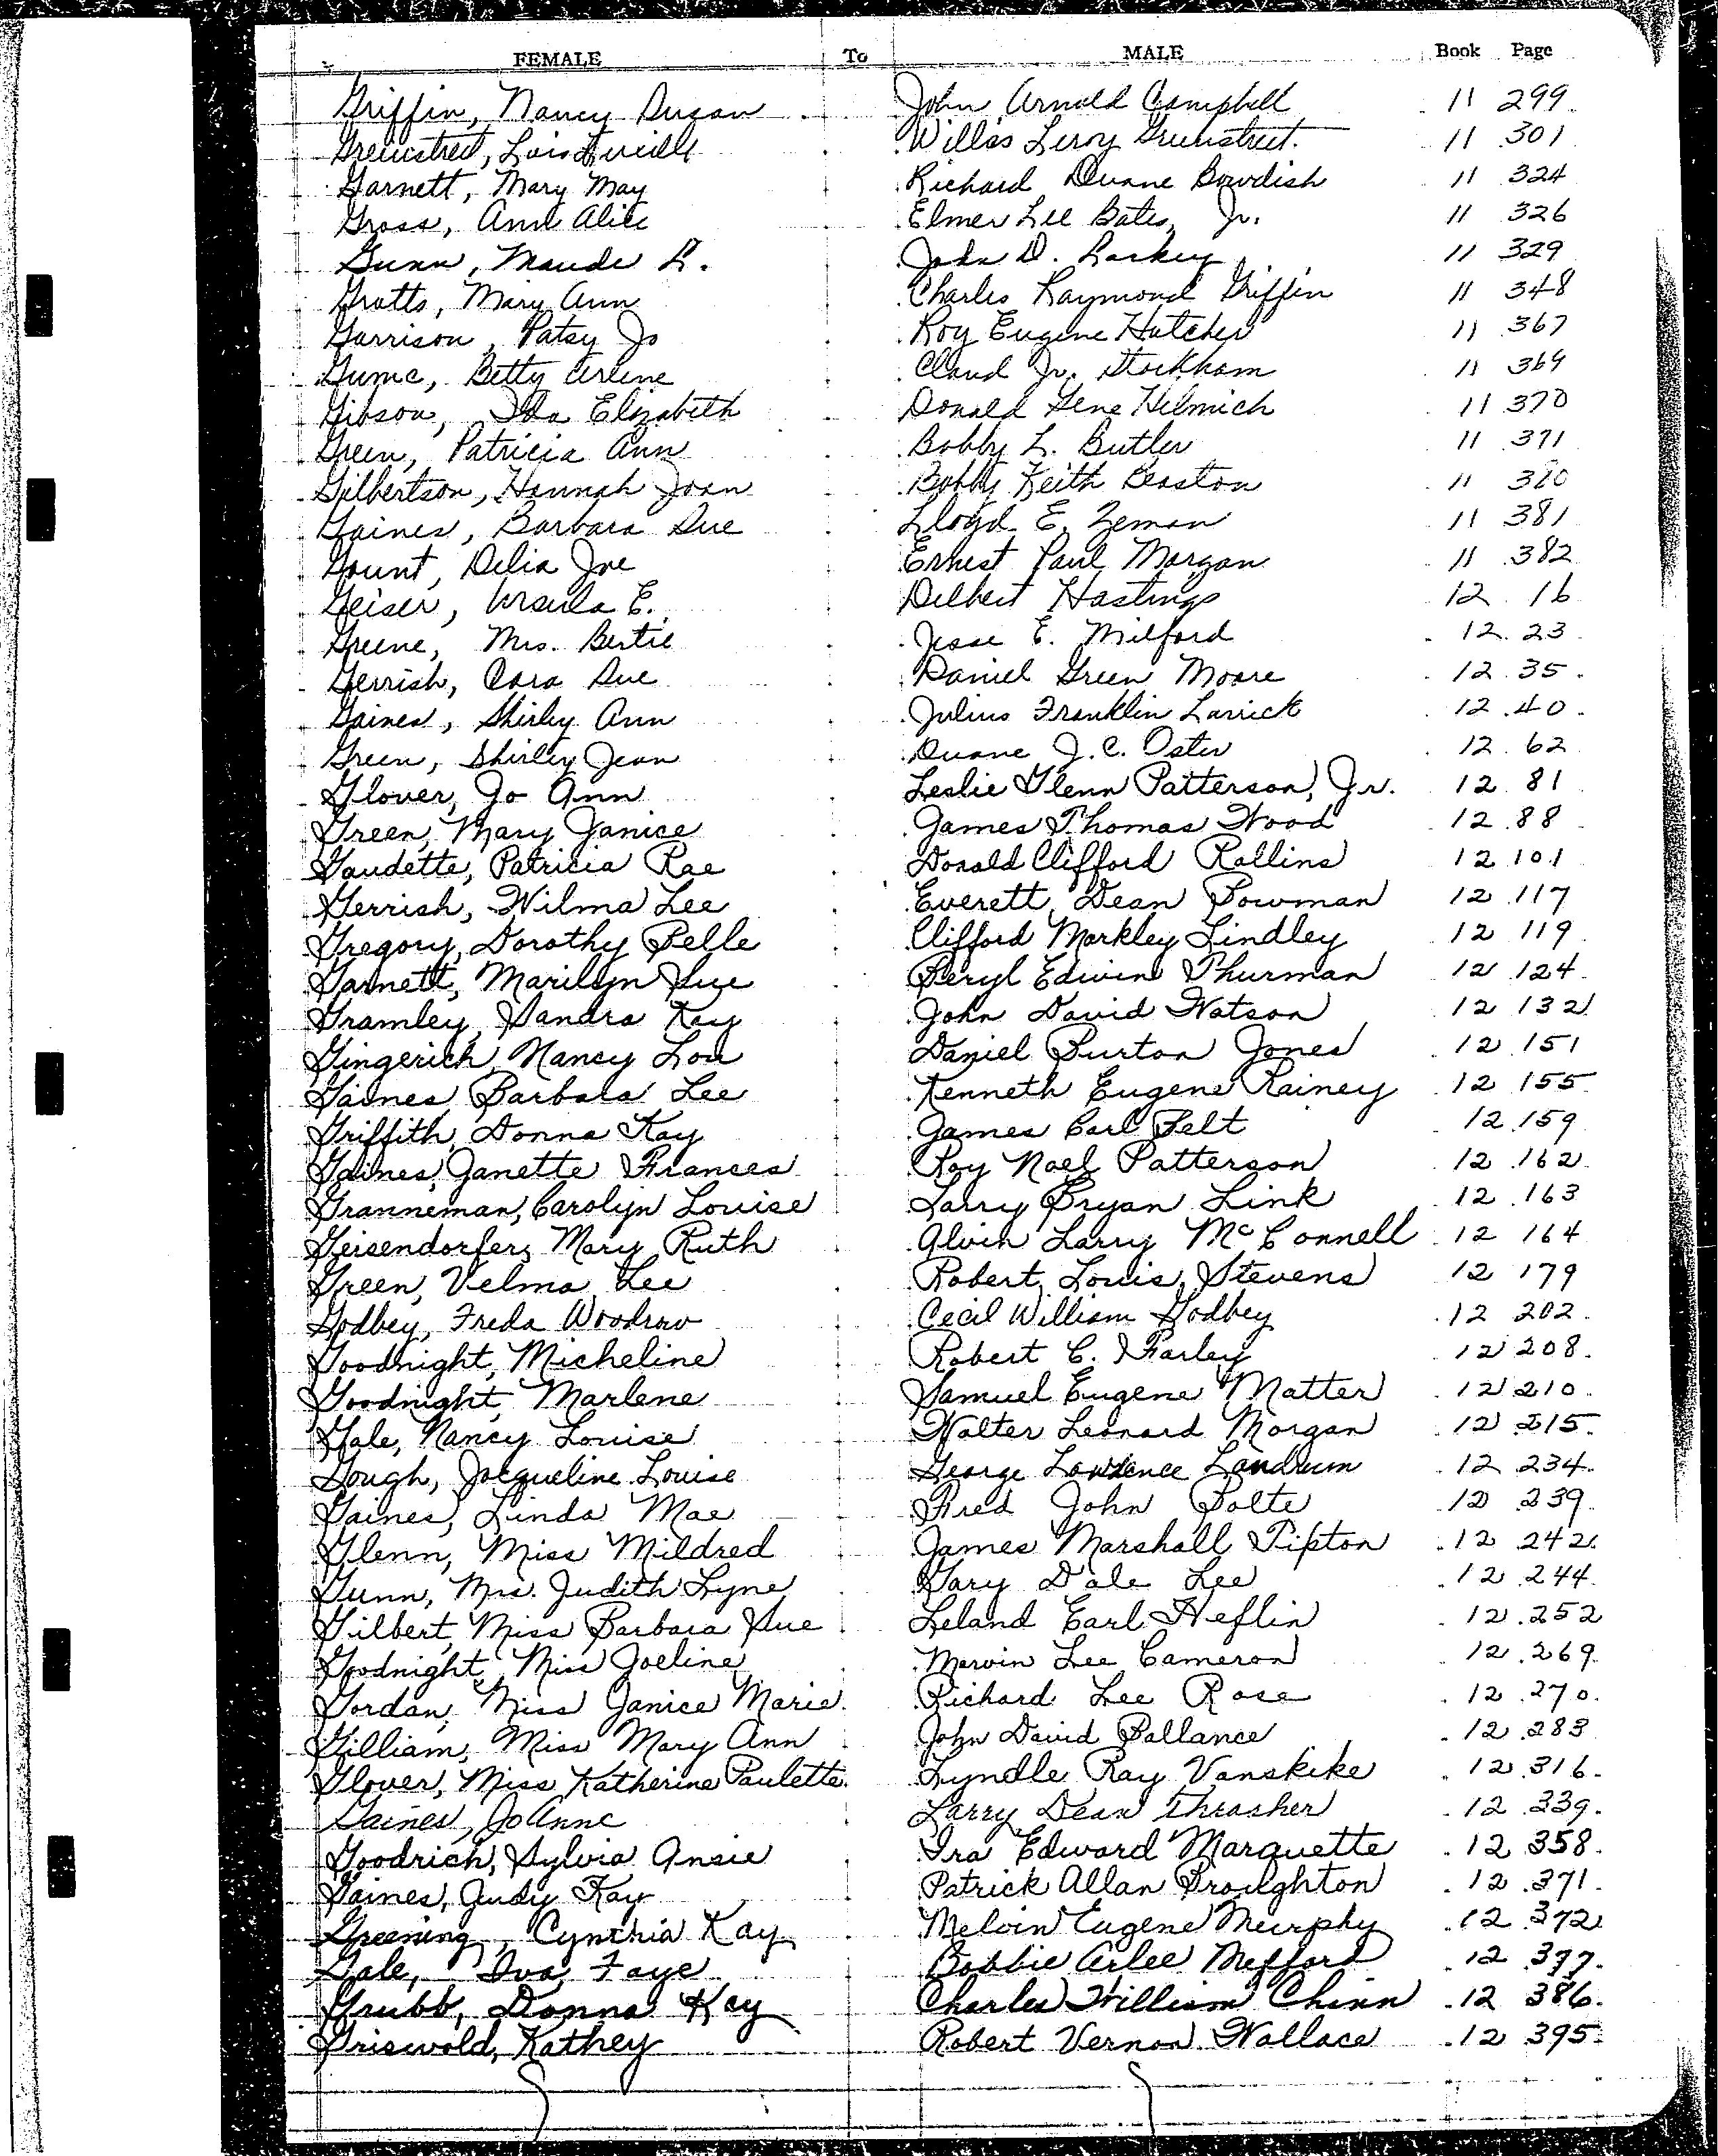 FEMALE To MALE Book Page
Griffin, Nancy Susan John Arnold Campbell 11 299
Greenstreet, Lois Lucille Willis Leroy Greenstreet. 11 301
Garnett, Mary May Richard Duane Bowdish 11 324
Gross, Ann Alice Elmer Lee Bates, Jr. 11 326
Gunn, Maude L. John D. Larkey 11 329
Grotts, Mary Ann Charles Raymond Griffin 11 348
Garrison, Patsy Jo Roy Eugene Hatcher 11 367
Betty Arlene Claud Jr. Stockham 11 369
Gibson, Ida Elizabeth Donald Gene Helmich 11 370
Green, Patricia Ann Bobby L. Butler 11 371
Gilbertson, Hannah Joan Bobby Keith Beaston 11
Gaines, Barbara Sue Lloyd E. Zeman 11 381
Gount, Delia Joe Ernest Paul Morgan 11 382
Geiser, Ursula E. Delbert Hastings 12 16
Greene, Mrs. Bertie Jesse E. Milford 12 23
Gerrish, Cara Sue Daniel Green Moore 12 35
Gaines, Shirley Ann Julius Franklin Larrick 12 40
Green, Shirley Jean Duane J.C. Oster 12 62
Glover, Jo Ann Leslie Glenn Patterson, Jr. 12 81
Green, Mary Janice James Thomas Wood 12 88
Gaudette, Patricia Rae Donald Clifford Rollins 12 101
Gerrish, Wilma Lee Everett Dean Bowman 12 117
Gregory, Dorothy Belle Clifford Markley Lindley 12 119
Garnett, Marilyn Sue Beryl Edwin Thurman 12 124
Gramley, Sandra Kay John David Watson 12 132
Gingerich, Nancy Lou Daniel Burton Jones 12 151
Gaines, Barbara Lee Kenneth Eugene Rainey 12 155
Griffith, Donna Kay James Carl Felt 12 159
Gaines, Janette Frances Roy Noel Patterson 12 162
Granneman, Carolyn Louise Larry Bryan Link 12 163
Geisendorfer, Mary Ruth Alvin Larry McConnell 12 164
Green, Velma Lee Robert Louis Stevens 12 179
Godbey, Freda Woodrow Cecil William Godbey 12 202
Goodnight, Micheline Robert C. Farley 12 208
Goodnight, Marlene Samuel Eugene Matter 12 210
Gale, Nancy Louise Walter Leonard Morgan 12 215
Gough, Jacqueline Louise George Lawrence Landrum 12 234
Gaines, Linda Mae Fred John Bolte 12 239
Glenn, Miss Mildred James Marshall Tipton 12 242
Gunn, Mrs. Judith Lyne Gary Dale Lee 12 244
Gilbert, Miss Barbara Sue Leland Earl Heflin 12 252
Goodnight, Miss Joeline Marvin Lee Cameron 12 269
Gordan, Miss Janice Marie Richard Lee Rose 12 270
Gilliam, Miss Mary Ann John David Ballance 12 283
Glover, Miss Katherine Paulette Lyndle Ray Vanskike 12 316
Gaines, JoAnne Larry Dean Thrasher 12 339
Goodrich, Sylvia Ansie Ira Edward Marquette 12 358
Gaines, Judy Kay Patrick Allan Broughton 12 371
Greening, Cynthia Kay Melvin Eugene Murphy 12 372
Gale, Iva Faye Bobbie Arlee Mefford 12 377
Grubb, Donna Kay Charles William Chinn 12 386
Griswold, Kathey Robert Vernon Wallace 12 395